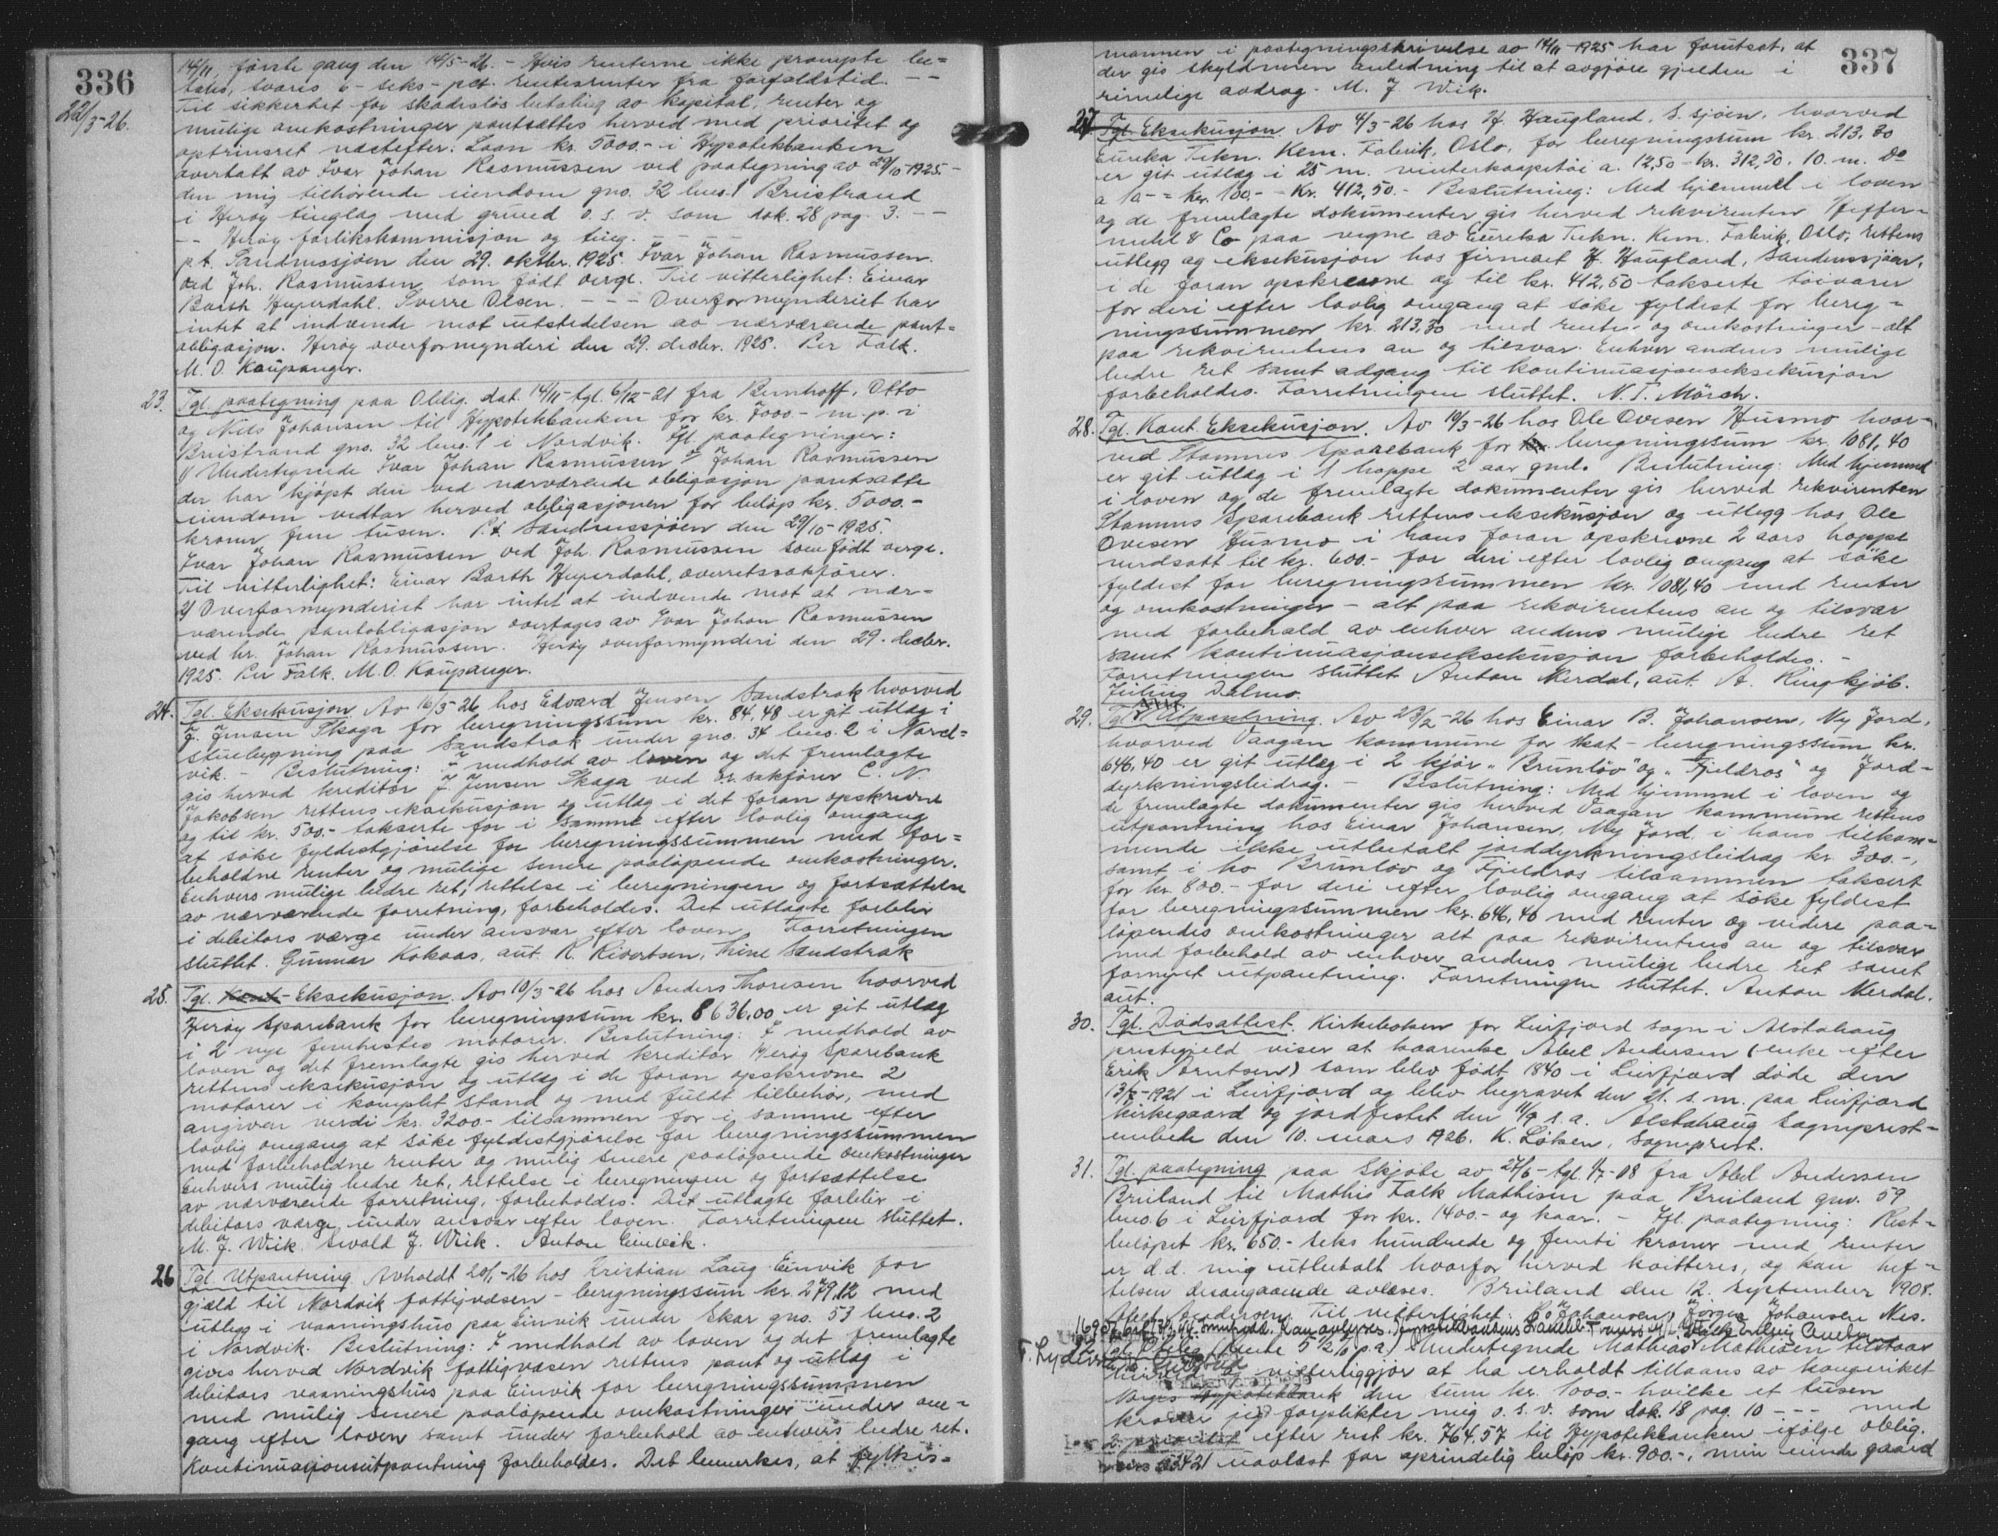 336
22/3-26.
14/11, første gang den 14/5-26. - Hvis renterne ikke prompte be=
tales, svares 6 - seks - pct. rentesrenter fra forfaldstid. - -
Til sikkerhet for skadesløs betaling av kapital, renter og
mulige omkostninger pantsættes herved med prioritet og
optrinsret næstefter: Laan kr. 5000.- i Hypotekbanken
overtatt av Ivar Johan Rasmussen ved paategning av 29/10-1925. -
den mig tilhørende eiendom gno. 32 bno. 1 Breistrand
i Herøy tinglag med grund o. s. v. som dok. 28 pag. 3. - -
- - Herøy forlikskommisjon og ting.
p.t. Sandnessjøen den 29. oktbr. 1925. Ivar Johan Rasmussen.
ved Joh. Rasmussen som født verge. Til vitterlighet: Einar
Barth Heyerdahl. Sverre Olsen. - - - Overformynderiet har
intet at indvende mot utstedelsen av nærværende pant=
obligasjon. Herøy overformynderi den 29. decbr. 1925. Per Falk.
M. O. Kaupanger.
23. Tgl. paategning paa Oblig. dat. 14/11 - tgl. 6/12-21 fra Bernhoff, Otto
og Nils Johansen til Hypotekbanken for kr. 7000.- m. p. i
Breistrand gno. 32 bno. 1 i Nordvik. Ifl. paategninger:
1/ Undertegnede Ivar Johan Rasmussen Johan Rasmussen
der har kjøpt den ved nærværende obligasjon pantsatte
eiendom vedtar herved obligasjonen for beløp kr. 5000.-
kroner fem tusen. P.t. Sandnessjøen den 29/10-1925.
Ivar Johan Rasmussen ved Joh. Rasmussen som født verge.
Til vitterlighet: Einar Barth Heyerdahl, overretssakfører.
2/ Overformynderiet har intet at indvende mot at nær=
værende pantobligasjon overtages av Ivar Johan Rasmussen
ved hr. Johan Rasmussen. Herøy overformynderi den 29. decbr.
1925. Per Falk. M. O. Kaupanger.
24. Tgl. Eksekusjon. Av 16/3-26 hos Edvard Jensen Sandstrak hvorved
J. Jensen Skaga for beregningssum kr. 84,48 er git utlæg i
stuebygning paa Sandstrak under gno. 34 bno. 2 i Nord=
vik. - Beslutning: I medhold av loven og det fremlagte
gis herved kreditor J. Jensen Skaga ved o.r. sakfører C. N.
Jakobsen rettens eksekusjon og utlæg i det foran opskrevne
og til kr. 500.- takserte for i samme efter lovlig omgang
at søke fyldestgjørelse for beregningssummen med for=
beholdne renter og mulige senere paaløpende omkostninger.
Enhvers mulige bedre ret, rettelse i beregningen og fortsættelse
av nærværende forretning, forbeholdes. Det utlagte forblir
i debitors værge under ansvar efter loven. Forretningen
sluttet. Gunnar Kokaas, aut. R. Sivertsen, Trine Sandstrak
25. Tgl. Kont. Eksekusjon. Av 10/3-26 hos Anders Thoresen hvorved
Herøy Sparebank for beregningssum kr. 8636,00 er git utlæg
i 2 nye femhestes motorer. Beslutning: I medhold av
loven og det fremlagte gis herved kreditor Herøy Sparebank
rettens eksekusjon og utlæg i de foran opskrevne 2
motorer i komplet stand og med fuldt tilbehør, med
angiven verdi kr. 3200.- tilsammen for i samme efter
lovlig omgang at søke fyldestgjørelse for beregningssummen
med forbeholdne renter og mulig senere paaløpende omkostninger
Enhvers mulig bedre ret, rettelse i beregningen og fortsættelse
av nærværende forretning, forbeholdes. Det utlagte forblir i
debitors værge under ansvar efter loven. Forretningen sluttet.
M. J. Wiik. Evald J. Wiik. Anton Einvik.
26 Tgl. Utpantning. Avholdt 20/1-26 hos Kristian Laug. Einvik for
gjæld til Nordvik fattigvæsen - beregningssum kr. 279,12 med
utlegg i vaaningshus paa Einvik under Skar gno. 53 bno. 2
i Nordvik. Beslutning: I medhold av loven og det fremlagte
gives herved Nordvik fattigvæsen rettens pant og utlæg i
debitors vaaningshus paa Einvik for beregningssummen
med mulig senere paaløpende omkostninger under om=
gang efter loven samt under forbehold av enhvers bedre ret.
Kontinuasjonsutpantning forbeholdes. Det bemerkes, at fylkes=
337
mannen i paategningsskrivelse av 14/11-1925 har forutsat, at
der gis skyldneren anledning til at avgjøre gjelden i
rimelige avdrag. M. J. Wik.
27. Tgl. Eksekusjon. Av 4/3-26 hos H. Haugland, S. sjøen, hvorved
Eureka Tekn. Kem. Fabrik, Oslo, for beregningsum kr. 213,30
er git utlæg i 25 m. vinterkaapetøi a. 12,50 - kr. 312,50. 10. m. Do
a 10 - = kr. 100.- - Kr. 412,50. - Beslutning: Med hjemmel i loven
og de fremlagte dokumenter gis herved rekvirenten Heffer=
mehl & Co paa vegne av Eureka Tekn. Kem. Fabrik, Oslo, rettens
utlegg og eksekusjon hos firmaet H. Haugland, Sandnessjøen,
i de foran opskrevne og til kr. 412,50 takserte tøivarer
for deri efter lovlig omgang at søke fyldest for bereg=
ningssummen kr. 213,30 med renter og omkostninger - alt
paa rekvirentens an og tilsvar. Enhver andens mulige
bedre ret samt adgang til kontinuasjonseksekusjon
forbeholdes. Forretningen sluttet. N. T. Mörch.
28. Tgl. Kont. Eksekusjon. Av 10/3-26 hos Ole Ovesen Husmo hvor=
ved Stamnes Sparebank for beregningssum kr. 1081,40
er git utlæg i 1 hoppe 2 aar gml. Beslutning: Med hjemmel
i loven og de fremlagte dokumenter gis herved rekvirenten
Stamnes Sparebank rettens eksekusjon og utlegg hos Ole
Ovesen Husmo i hans foran opskrevne 2 aars hoppe
verdsatt til kr. 600.- for deri efter lovlig omgang at søke
fyldest for beregningssummen kr. 1081,40 med renter
og omkostninger - alt paa rekvirentens an og tilsvar
med forbehold av enhver andens mulige bedre ret
samt kontinuasjonseksekusjon forbeholdes. -
Forretningen sluttet. Anton Merdal, aut. A. Ringkjøb.
29. Tgl. Utpantning. Av 23/2-26 hos Einar B. Johansen, Ny Jord,
hvorved Vaagan kommune for skat - beregningssum kr.
646,40 er git utlæg i 2 kjør "Brunløv" og "Fjeldros" og Jord=
dyrkningsbidrag. - Beslutning: Med hjemmel i loven og
de fremlagte dokumenter gis herved Vaagan kommune rettens
utpantning hos Einar Johansen, Ny Jord i hans tilkom=
mende ikke utbetalt jorddyrkningsbidrag kr. 300.-,
samt i ko Brunløv og Fjeldros tilsammen taksert
for kr. 800.- for deri efter lovlig omgang at søke fyldest
for beregningssummen kr. 646,40 med renter og videre paa=
løpendes omkostninger alt paa rekvirentens an og tilsvar
med forbehold av enhver andens mulige bedre ret samt
fornyet utpantning. Forretningen sluttet. Anton Merdal.
aut.
30. Tgl. Dødsattest. Kirkeboken for Leirfjord sogn i Alstahaug
prestegjeld viser at kaarenke Abel Andersen (enke efter
Erik Arntsen) som blev født 1840 i Leirfjord døde den
1921 i Leirfjord og blev begravet den 21. s. m. paa Leirfjord
kirkegaard og jordfestet den s. a. Alstahaug sogneprest=
embede den 10. mars 1926. K. Løken, sogneprest.
31. Tgl. paategning paa Skjøte av 27/6 - tgl. 1/7-08 fra Abel Andersen
Breiland til Mathis Falk Mathisen paa Breiland gno. 59
bno. 6 i Leirfjord for kr. 1400.- og kaar. - Ifl. paategning: Rest=
beløpet kr. 650.- seks hundrede og femti kroner med renter
er d.d. mig utbetalt hvorfor herved kvitteres, og kan hef=
telsen desangaaende avlæses. Breiland den 12. september 1908.
Abel Andersen. Til vitterlighet: Johansen, Jørgen Johansen Nes.
Tgl. Oblig. (rente 5 1/2 % p.a.) Undertegnede Mathias Mathisen tilstaar
herved og vitterliggjør at ha erholdt tillaans av kongeriket
Norges Hypotekbank den sum kr. 1000.- hvilke et tusen
kroner jeg forplikter mig o. s. v. som dok. 18 pag. 10 - - - med
2. prioritet efter rest kr. 764,57 til Hypotekbanken ifølge oblig.
uavlæst for oprindelig beløp kr. 900.-, min eiende gaard